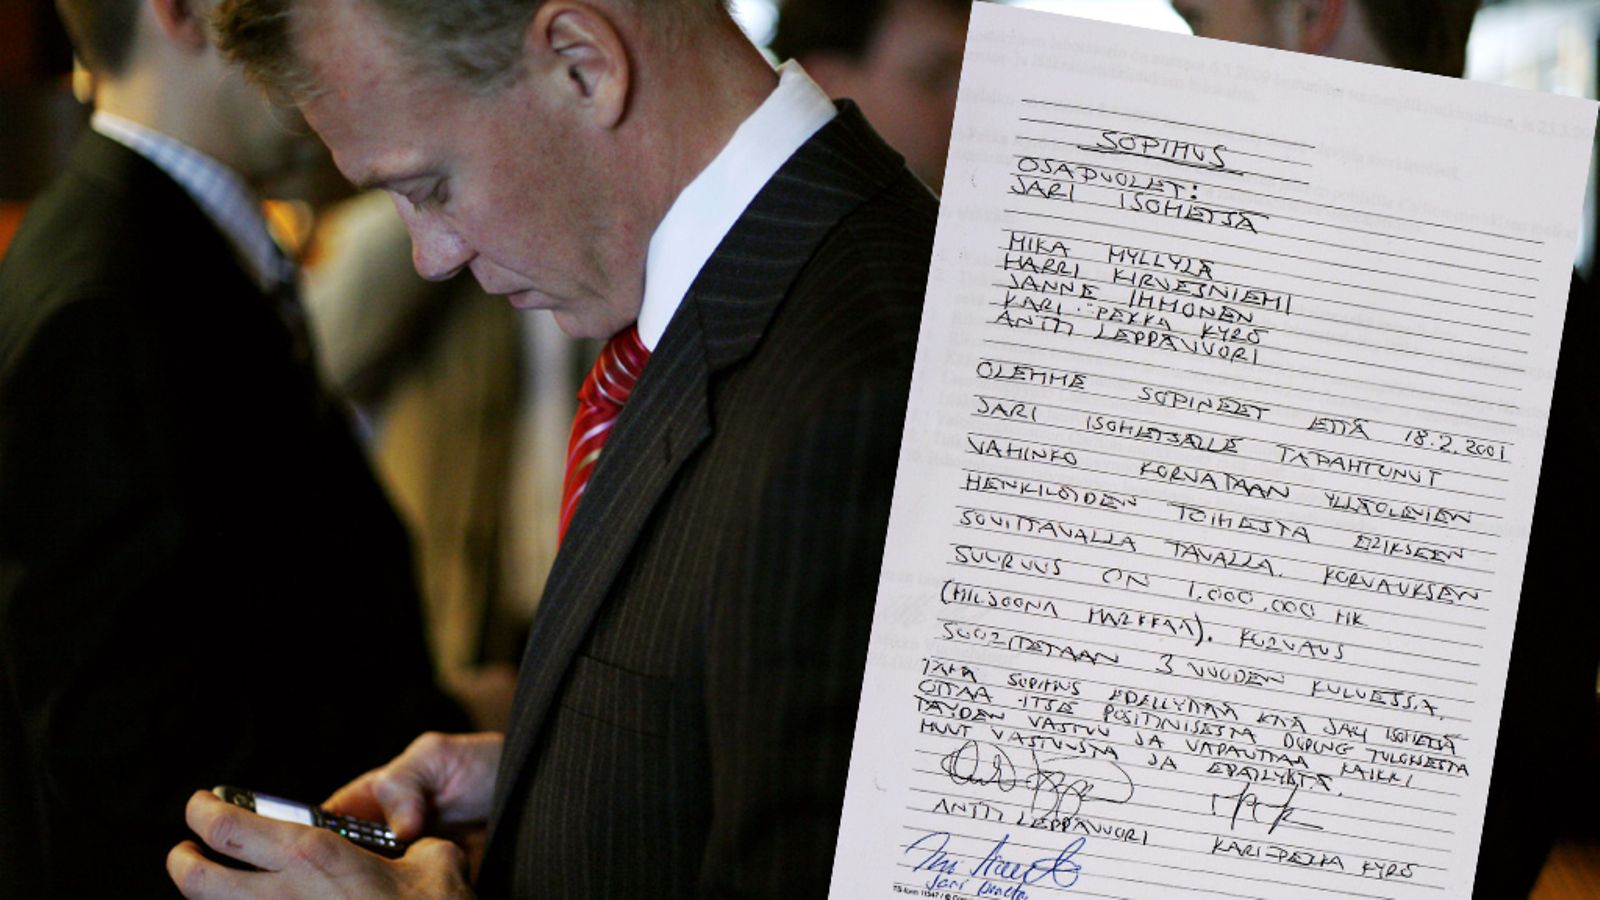 SOPIMUS
OSAPUOLET:
JARI ISOMETSÄ
MIKA MYLLYLÄ
HARRI KIRVESNIEMI
JANNE IMMONEN
KARI-PEKKA KYRÖ
ANTTI LEPPÄVUORI
OLEMME SOPINEET ETTÄ 18.2.2001
JARI ISOMETSÄLLE TAPAHTUNUT
VAHINKO KORVATAAN YLLÄOLEVIEN
HENKILÖIDEN TOIMESTA ERIKSEEN
SOVITTAVALLA TAVALLA. KORVAUKSEN
SUURUUS ON 1.000.000 MK
(MILJOONA MARKKAA). KORVAUS
SUORITETAAN 3 VUODEN KULUESSA.
TÄMÄ SOPIMUS EDELLYTTÄÄ ETTÄ JARI ISOMETSÄ
OTTAA ITSE POSITIIVISESTA DOPING TULOKSESTA
TÄYDEN VASTUU JA VAPAUTTAA KAIKKI
MUUT VASTUUSTA JA EPÄILYISTÄ.
ANTTI LEPPÄVUORI KARI-PEKKA KYRÖ